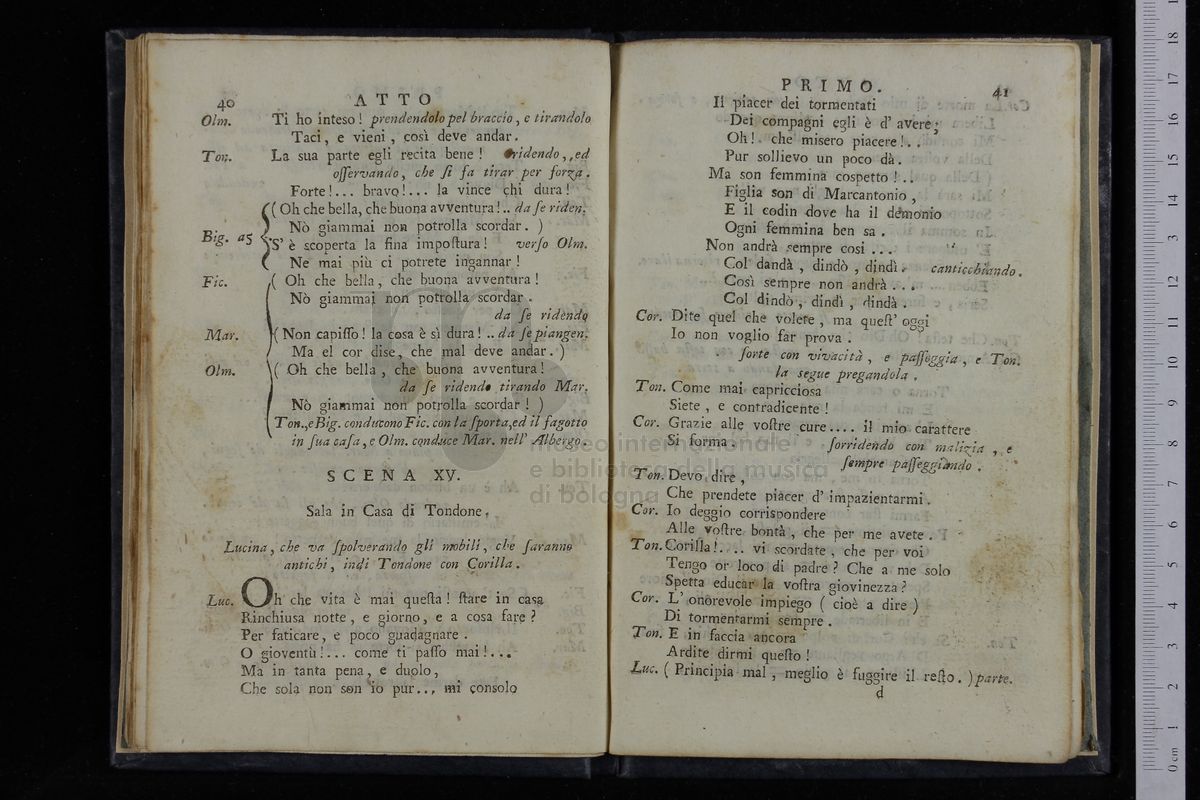 40
ATTO
Olm. Ti ho inteso! prendendolo pel braccio, e tirandolo
Taci, e vieni, così deve andar.
Ton. La sua parte egli recita bene! ridendo, ed
oſſervando, che ſi fa tirar per forza.
Forte!... bravo!... la vince chi dura!
( Oh che bella, che buona avventura!.. da ſe riden.
Nò giammai non potrolla scordar. )
Big. a5 S' è scoperta la fina impoſtura! verſo Olm.
Ne mai più ci potrete ingannar!
Fic. ( Oh che bella, che buona avventura!
Nò giammai non potrolla scordar.
da ſe ridendo
Mar. ( Non capiſſo! la cosa è sì dura!.. da ſe piangen.
Ma el cor dise, che mal deve andar. )
Olm. ( Oh che bella, che buona avventura!
da ſe ridendo tirando Mar.
Nò giammai non potrolla scordar! )
Ton., e Big. conducono Fic. con la ſporta, ed il fagotto
in ſua caſa, e Olm. conduce Mar. nell' Albergo.
SCENA XV.
Sala in Casa di Tondone.
Lucina, che va ſpolverando gli mobili, che ſaranno
antichi, indi Tondone con Corilla.
Luc. Oh che vita è mai queſta! ſtare in casa
Rinchiusa notte, e giorno, e a cosa fare?
Per faticare, e poco guadagnare.
O gioventù!... come ti paſſo mai!...
Ma in tanta pena, e duolo,
Che sola non son io pur... mi consolo
PRIMO.
41
Il piacer dei tormentati
Dei compagni egli è d' avere;
Oh! che misero piacere!..
Pur sollievo un poco dà.
Ma son femmina cospetto!..
Figlia son di Marcantonio,
E il codin dove ha il demonio
Ogni femmina ben sa.
Non andrà sempre cosi...
Col dandà, dindò, dindì. canticchiando.
Così sempre non andrà...
Col dindò, dindì, dindà.
Cor. Dite quel che volete, ma queſt' oggi
Io non voglio far prova.
forte con vivacità, e paſſeggia, e Ton.
la segue pregandola.
Ton. Come mai capricciosa
Siete, e contradicente!
Cor. Grazie alle voſtre cure.... il mio carattere
Si forma. ſorridendo con malizia, e
ſempre paſſeggiando.
Ton. Devo dire,
Che prendete piacer d' impazientarmi.
Cor. Io deggio corrispondere
Alle voſtre bontà, che per me avete.
Ton. Corilla!.... vi scordate, che per voi
Tengo or loco di padre? Che a me solo
Spetta educar la voſtra giovinezza?
Cor. L' onorevole impiego ( cioè a dire )
Di tormentarmi sempre.
Ton. E in faccia ancora
Ardite dirmi queſto!
Luc. ( Principia mal, meglio è fuggire il reſto. ) parte.
d
museo internazionale
e biblioteca della musica
di bologna
0 cm 1 2 3 4 5 6 7 8 9 10 11 12 13 14 15 16 17 18